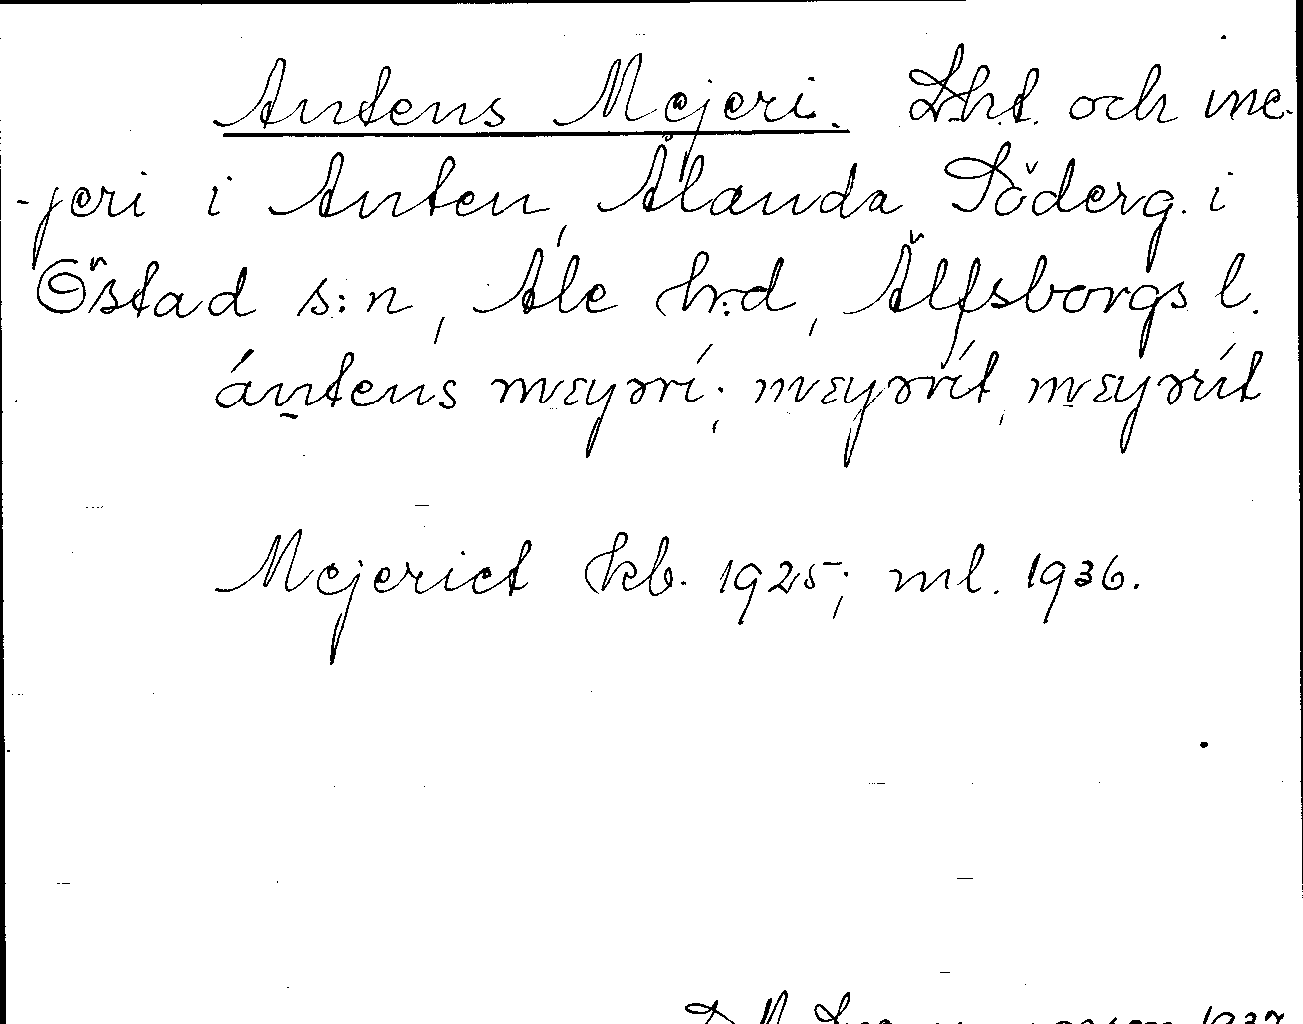 Antens Mejeri. Lht. och me-
-jeri i Anten, Ålanda Söderg. i
Östad s:n, Ale hrd, Älfsborgs l.
ántens mɛyərí; mɛyərít, mɛyərít
Mejeriet kb. 1925; ml. 1936.
1937